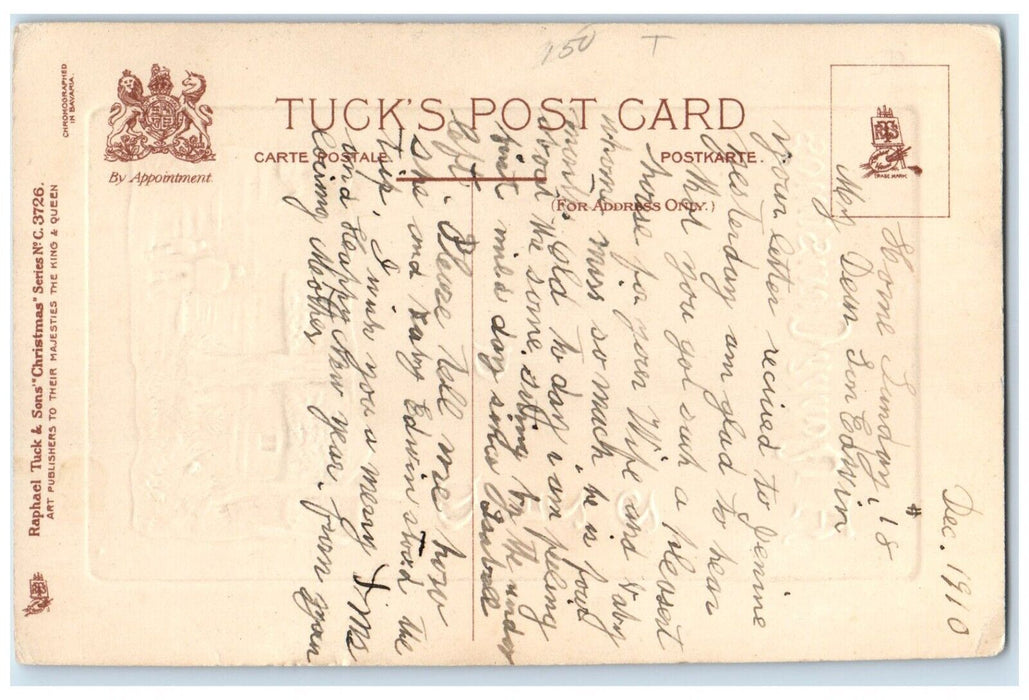 CHROMOGRAPHED
IN BAVARIA.
By Appointment
TUCK'S POST CARD
CARTE POSTALE.
POSTKARTE.
(FOR ADDRESS ONLY.)
TRADE MARK
Raphael Tuck & Sons' "Christmas" Series No C. 3726.
ART PUBLISHERS TO THEIR MAJESTIES THE KING & QUEEN
150 T
Dec. 1910
Home Sunday, 18
My Dear Son Edwin
your letter recived to Jennie
yesterday am glad to hear
that you got such a pleasent
house for your Wife and baby
whom i miss so much he is four
months old to day i am feling
about the same. siting by the window
fine mild day since Isabell
left. Please tell me how
she and baby Edwin stood the
trip, I wish you a merry X mas
and Happy New year. from your
loving Mother